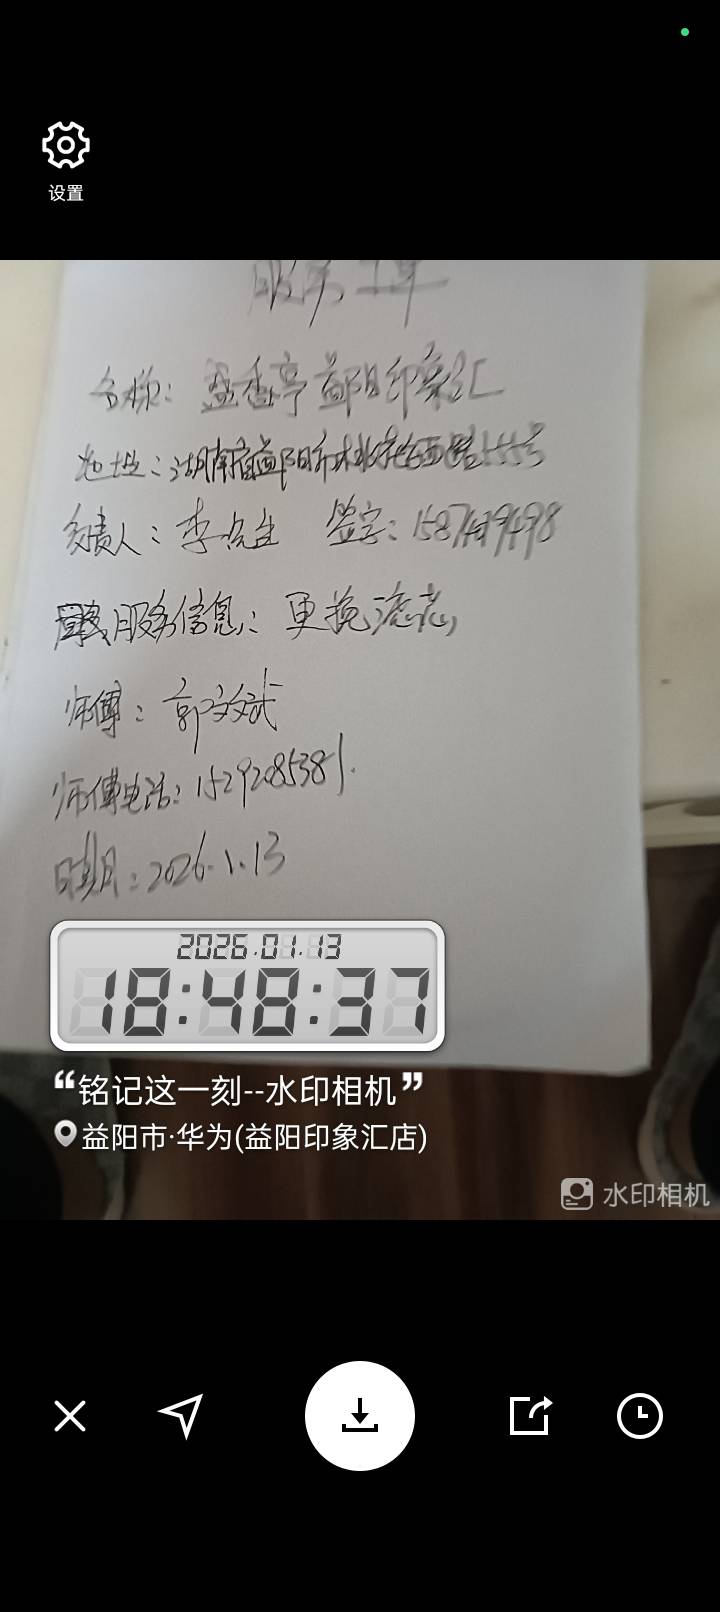 设置
服务工单
名称：盛香亭益阳印象汇
地址：湖南省益阳市桃花仑西路555号
负责人：李先生 签字：
服务信息：更换滤芯
师傅：郭文斌
师傅电话：15292085381.
日期：2026.1.13
2026.01.13
18:48:37
“铭记这一刻--水印相机”
益阳市·华为(益阳印象汇店)
水印相机